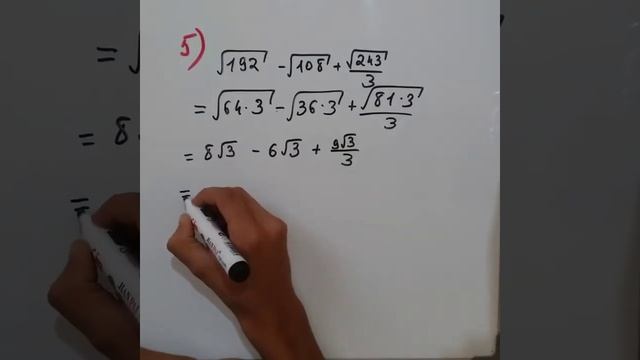 5) √192 - √108 + √243/3
= √64·3 - √36·3 + √81·3/3
= 8√3 - 6√3 + 9√3/3
=